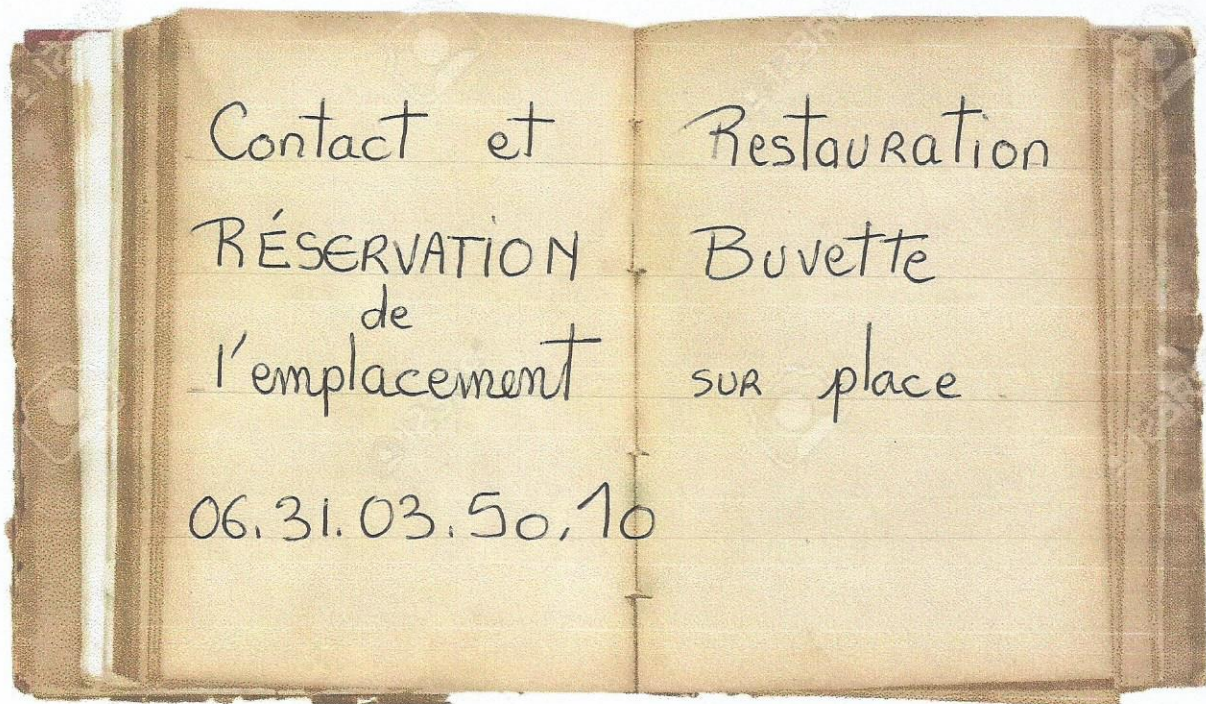 Contact et
RÉSERVATION
de
l'emplacement
06.31.03.50.10
Restauration
Buvette
sur place